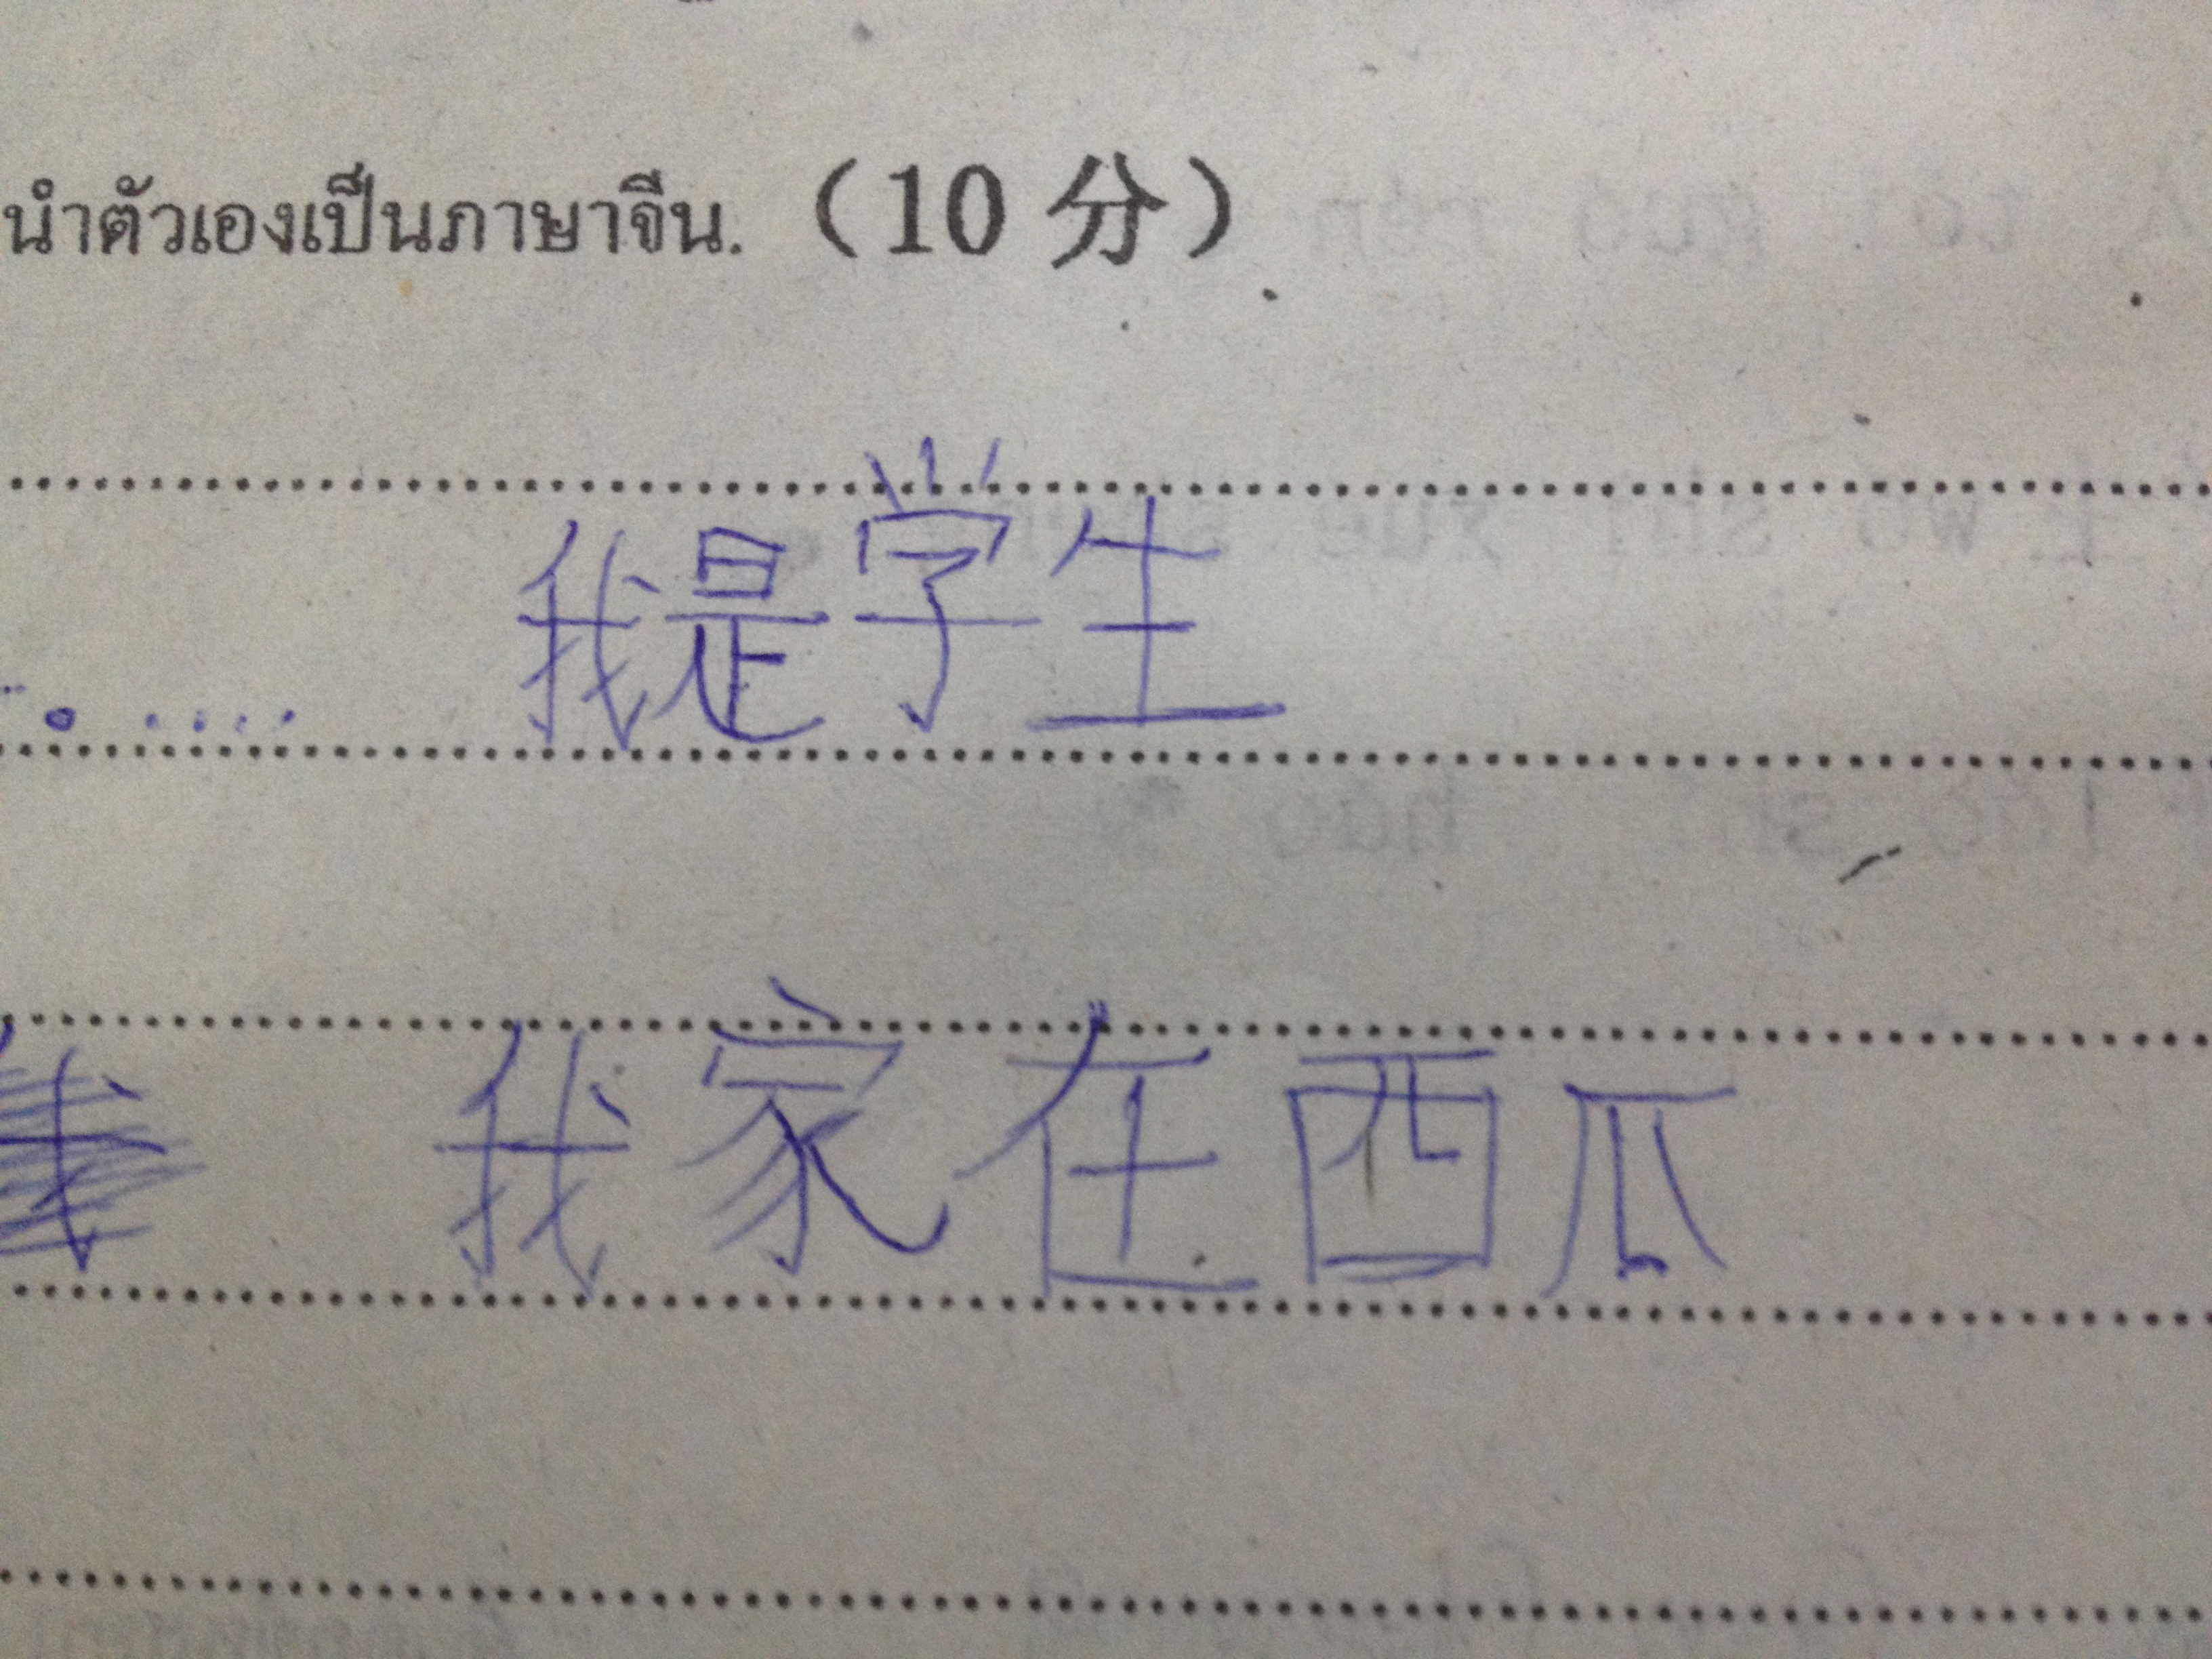 นำตัวเองเป็นภาษาจีน. （10 分）
我是学生
我家在西瓜